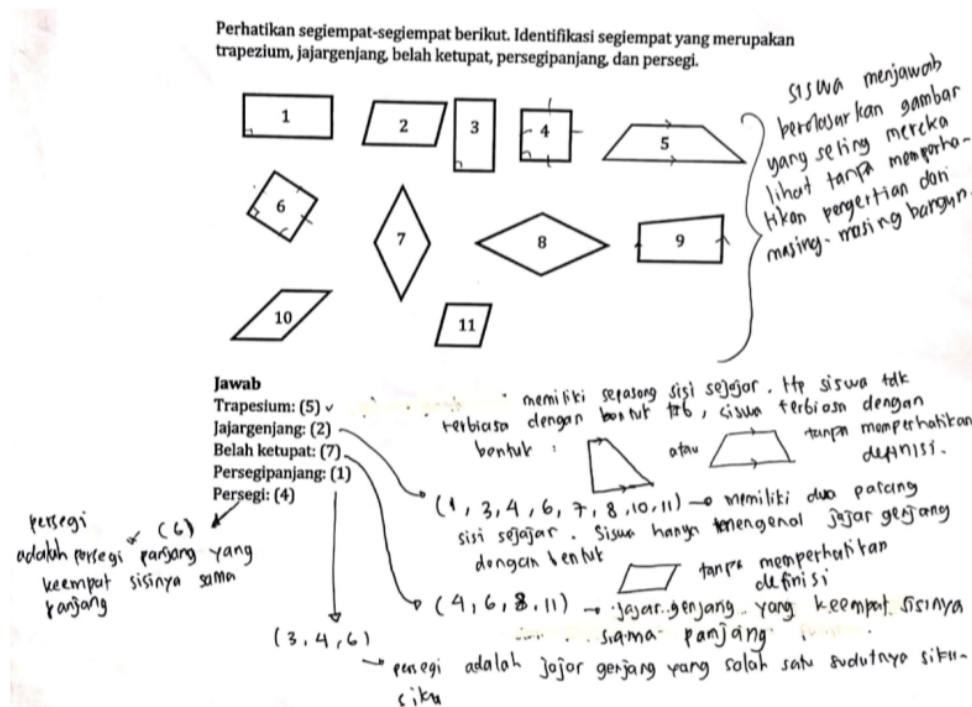 Perhatikan segiempat-segiempat berikut. Identifikasi segiempat yang merupakan
trapezium, jajargenjang, belah ketupat, persegipanjang, dan persegi.
1
2
3
4
5
6
7
8
9
10
11
siswa menjawab
berdasarkan gambar
yang sering mereka
lihat tanpa memperha-
tikan pengertian dari
masing-masing bangun.
Jawab
Trapesium: (5) ✓
Jajargenjang: (2)
Belah ketupat: (7)
Persegipanjang: (1)
Persegi: (4)
memiliki sepasang sisi sejajar. Ttp siswa tdk
terbiasa dengan bentuk tsb, siswa terbiasa dengan
bentuk : atau tanpa memperhatikan
definisi.
(1, 3, 4, 6, 7, 8, 10, 11) → memiliki dua pasang
sisi sejajar. Siswa hanya mengenal jajar genjang
dengan bentuk tanpa memperhatikan
definisi
(4, 6, 8, 11) → jajar genjang yang keempat sisinya
sama panjang
(3, 4, 6)
→ persegi adalah jajar genjang yang salah satu sudutnya siku-
siku
(6)
persegi
adalah persegi panjang yang
keempat sisinya sama
panjang